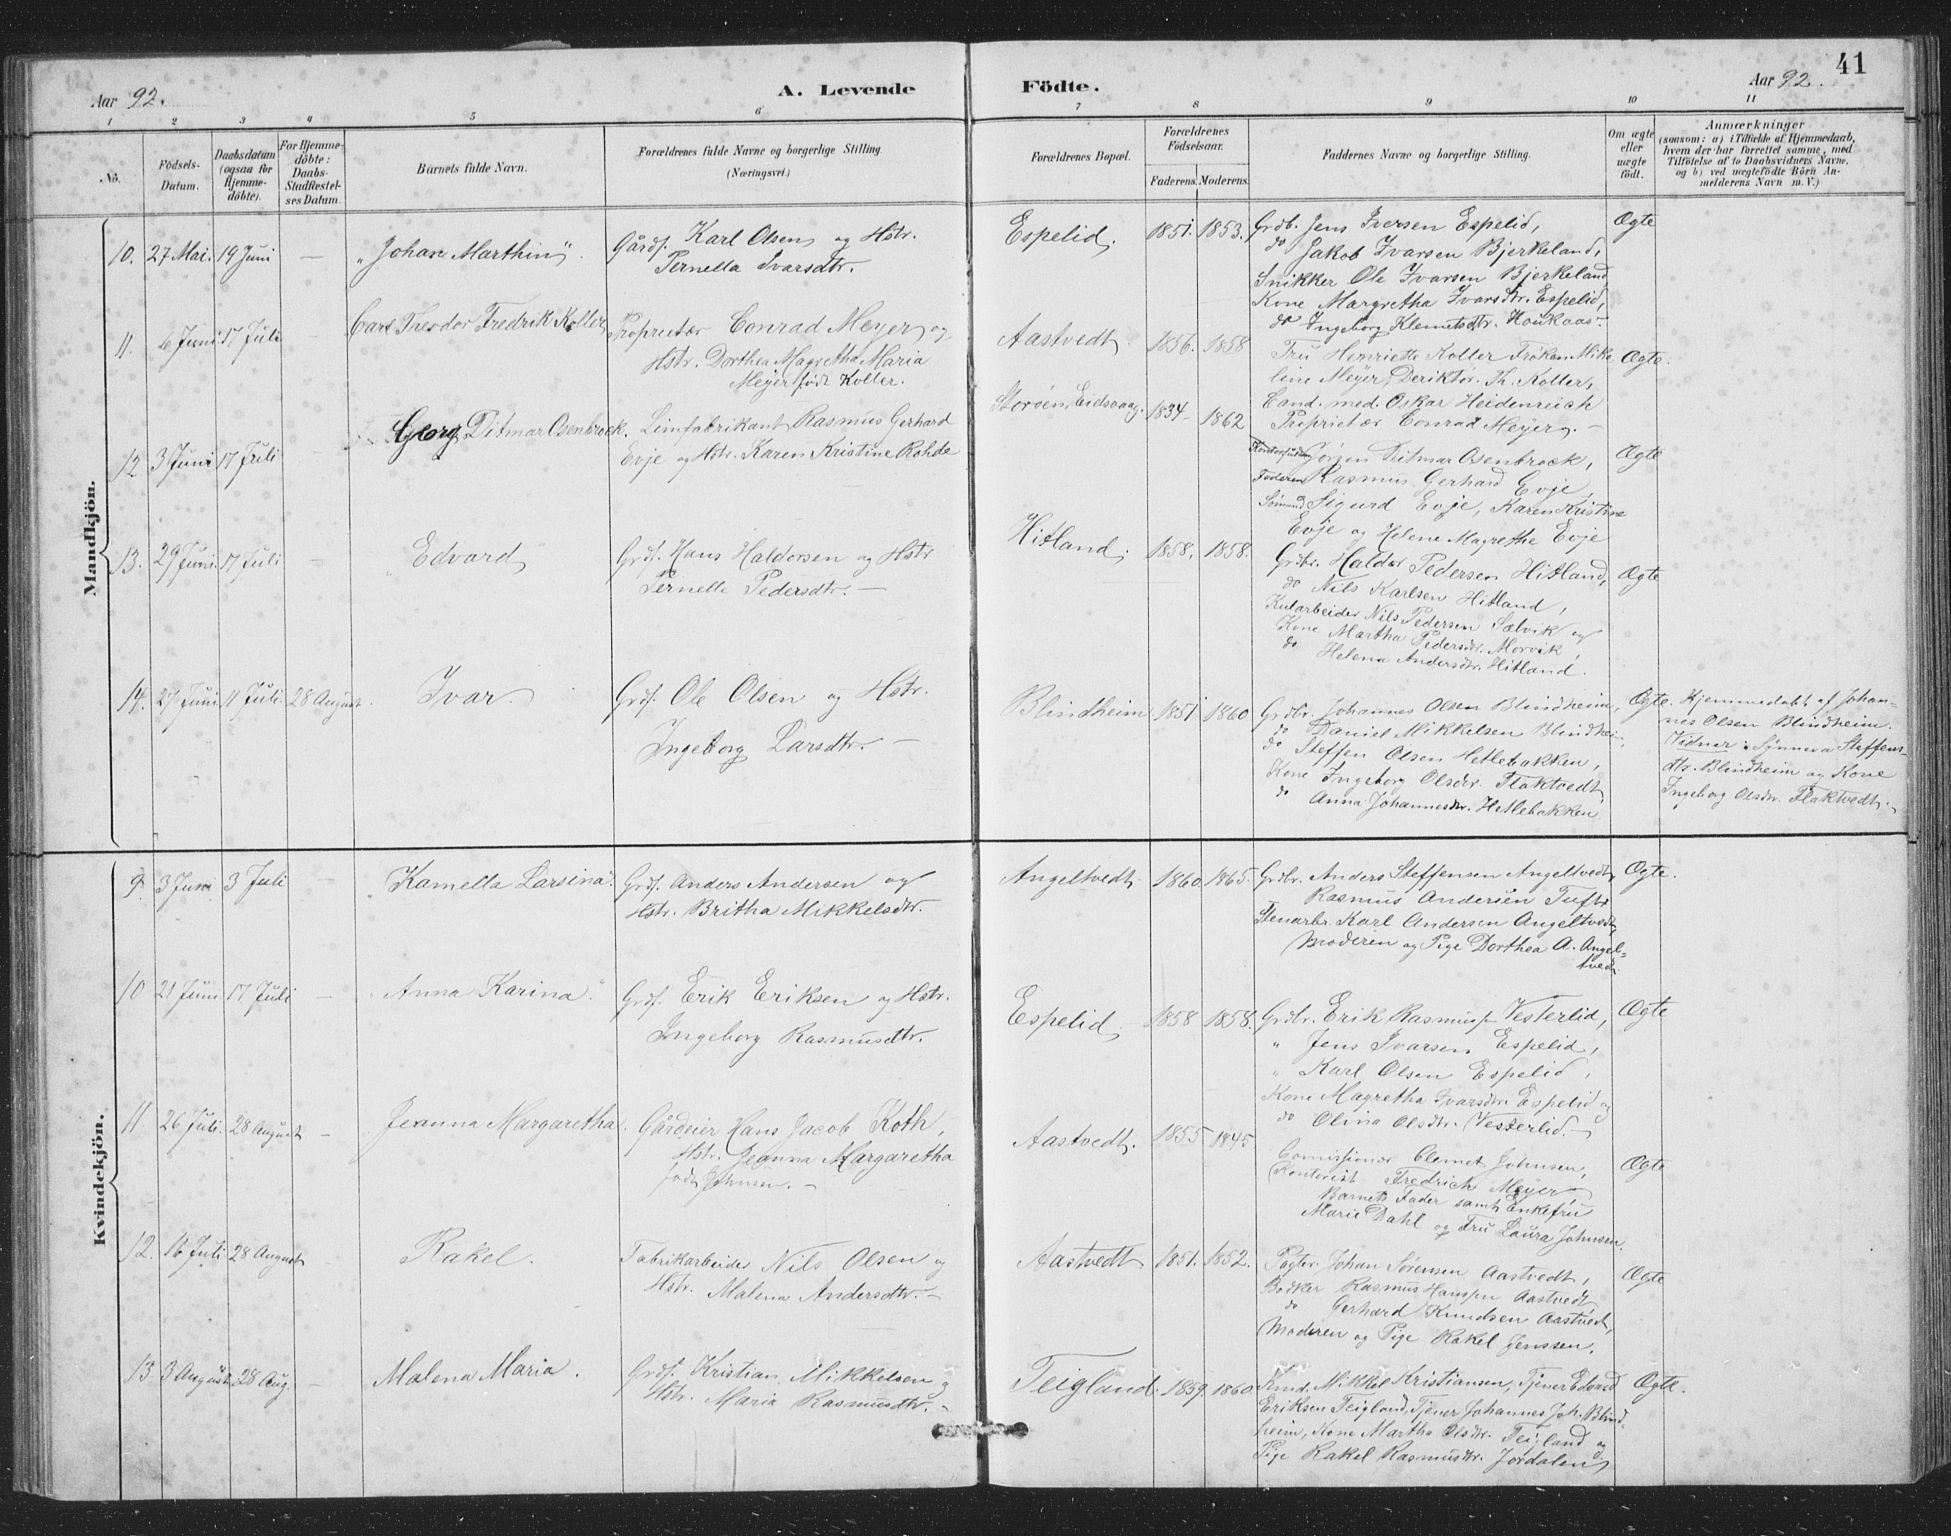 41
Aar 92.
A. Levende
Födte.
Aar 92.
1 2 3 4 5 6 7 8 9 10 11
No.
Födsels-Datum.
Daabsdatum (ogsaa for Hjemme-döbte).
For Hjemme-döbte: Daabs-Stadfestel-ses Datum.
Barnets fulde Navn.
Forældrenes fulde Navne og borgerlige Stilling
(Næringsvei.)
Forældrenes Bopæl.
Forældrenes Födselsaar.
Faderens. Moderens.
Faddernes Navne og borgerlige Stilling.
Om ægte eller uægte födt.
Anmærkninger
(saasom: a) i Tilfælde af Hjemmedaab,
hvem der har forrettet samme, med
Tilföielse af to Daabsvidners Navne,
og b) ved uægtefödte Börn An-
melderens Navn m. V.)
Mandkjön.
10. 27 Mai. 19 Juni — "Johan Marthin"
Gårdf. Karl Olsen og Hstr.
Pernella Ivarsdtr.
Espelid. 1851. 1853.
Grdb. Jens Iversen Espelid,
do Jakob Ivarsen Bjerkeland,
Snikker Ole Ivarsen Bjerkeland
Kone Margretha Ivarsdtr. Espelid,
do Ingeborg Klemetsdtr. Houkaas.
Ægte
11. 6 Juni 17 Juli — Carl Theodor Fredrik Koller
Proprietær Conrad Meyer og
Hstr. Dorthea Magretha Maria
Meyer født Koller.
Aastvedt. 1856. 1858
Fru Henriette Koller Frøken Mika
line Meyer, Deriktør. Th. Koller,
Cand. med. Oskar Heidenreich
Proprietær Conrad Meyer. —
Ægte.
12 3 Juni 17 Juli — Georg Ditmar Osenbroek.
Leimfabrikant Rasmus Gerhard
Evje og Hstr. Karen Kristine Rohde
Storøen, Eidsvaag. 1834 1862
Jørgen Ditmar Osenbrock,
Faderen Rasmus Gerhard Evje
Sigurd Evje, Karen Kristine
Evje og Helene Magrethe Evje
Ægte
13. 29 Juni 17 Juli — Edvard
Grdf. Hans Haldorsen og Hstr
Pernelle Pedersdtr. —
Hitland. 1858. 1858.
Grdbr. Haldor Pedersen Hitland,
do Nils Karlsen Hitland,
Kularbeider Nils Pedersen Sælvik og
Kone Martha Pedersdtr. Morvik,
do Helena Andersdtr. Hitland.
Ægte
14. 27 Juni 11 Juli. 28 August. Ivar.
Grdf. Ole Olsen og Hstr.
Ingeborg Larsdtr. —
Blindheim 1851 1860
Grdbr. Johannes Olsen Blindheim,
do Daniel Mikkelsen Blindheim,
do Steffen Olsen Hetlebakken,
Kone Ingeborg Olsdtr. Flaktvedt,
do Anna Johannesdtr. Hetlebakken
Ægte.
Hjemmedøbt af Johan-
nes Olsen Blindheim.
Vidner: Synneva Steffens-
dtr. Blindheim og Kone
Ingeborg Olsdtr. Flaktvedt.
Kvindekjön.
9. 3 Juni 3 Juli Kamella Larsina".
Grdf. Anders Andersen og
Hstr. Britha Mikkelsdtr.
Angeltvedt. 1860. 1865.
Grdbr. Anders Steffensen Angeltvedt,
Rasmus Andersen Tufte
Stenarbr. Karl Andersen Angeltvedt,
Moderen og Pige Dorthea A. Angel-
tvedt.
Ægte.
10 21 Juni 17 Juli — Anna Karina".
Grdf. Erik Eriksen og Hstr.
Ingeborg Rasmusdtr.
Espelid. 1858 1858.
Grdbr. Erik Rasmuss. Vesterlid,
" Jens Ivarsen Espelid,
" Karl Olsen Espelid,
Kone Magretha Ivarsdtr Espelid og
do Olina Olsdtr. Vesterlid. —
Ægte
11 26 Juli. 28 August — Jeanna Margaretha.
Gårdeier Hans Jacob Koth,
Hstr. Jeanna Margaretha
født Johnsen. —
Aastvedt. 1855 1845
Comissionær Clemet Johnsen,
Kontorist Fredrich Meyer
Barnets Fader samt Enkefru
Marie Dahl og Fru Laura Johnsen.
Ægte
12. 16 Juli 28 August Rakel.
Fabrikarbeider Nils Olsen og
Hstr. Malena Andersdtr. —
Aastvedt 1851. 1852.
Pagter. Johan Sørensen Aastvedt,
Bødker Rasmus Hanssen Aastvedt
do Gerhard Knudsen Aastvedt,
Moderen og Pige Rakel Jenssen.
Ægte
13 3 August. 28 Aug. — Malena Maria.
Grdf. Kristian Mikkelsen og
Hstr. Maria Rasmusdtr. —
Teigland. 1859. 1860.
Mikkel Kristiansen, Tjener Edvard
Eriksen Teigland, Tjener Johannes Joh. Blind-
heim, Kone Martha Olsdtr. Teigland og
Pige Rakel Rasmusdtr. Jordalen
Ægte.